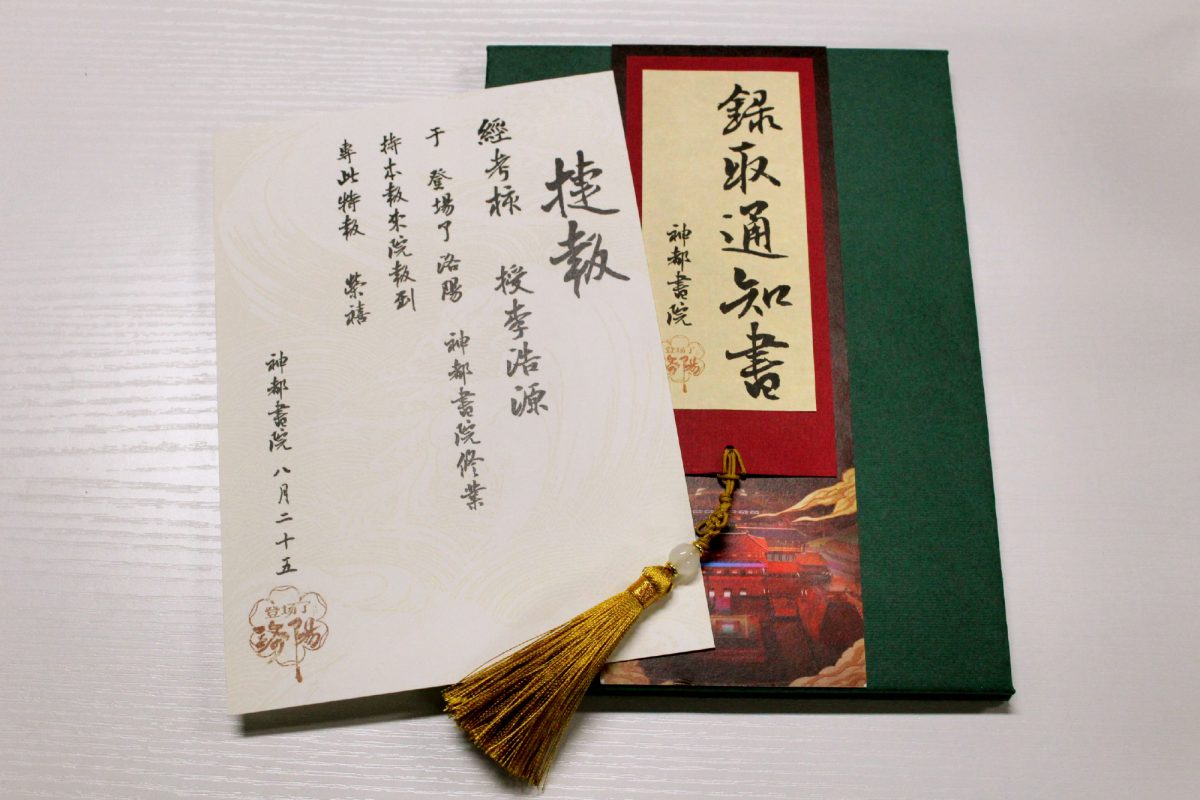 錄取通知書
神都書院
登場了
洛陽
捷報
經考核 授李浩源
于 登場了洛陽 神都書院修業
持本報來院報到
專此特報 榮禧
神都書院 八月二十五
登场了
洛陽